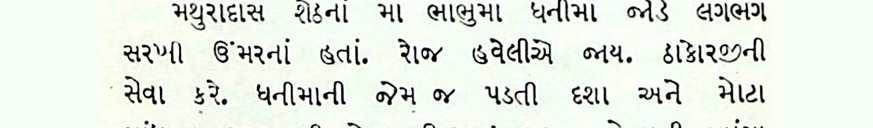 મથુરાદાસ શેઠનાં મા ભાભુમા ધનીમા જોડે લગભગ
સરખી ઉંમરનાં હતાં. રોજ હવેલીએ જાય. ઠાકોરજીની
સેવા કરે. ધનીમાની જેમ જ પડતી દશા અને મોટા